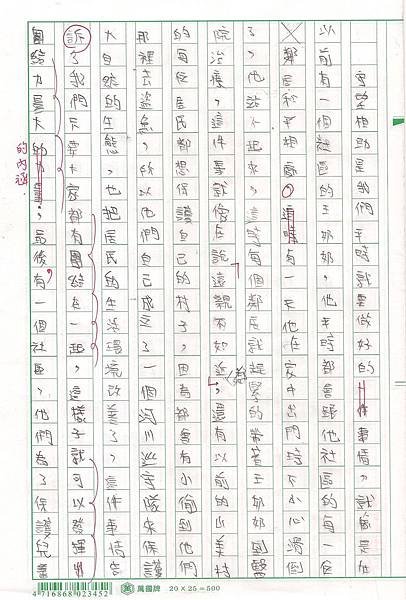 守望相助是我們平時就要做好的一件事情，就像是
以前有一個社區的王奶奶，他平時都會跟他社區的
鄰居和平相處。這時有一天他在家中出門時不小心滑倒
了，他站不起來，這時有個鄰居就趕緊的帶著王奶奶到醫
院治療，這件事就像在說遠親不如近鄰，還有以前的小美村
的每位居民都想保護自己的村子，因為都會有小偷到他們
那裡去盜，所以他們自己成立了一個河川巡守隊來保護
大自然的生態，也把居民的生活環境改善了，這件事情告
訴了我們只要大家都有團結在一起，這樣子就可以發揮出
團結力量大的，最後有一個社區，他們為了保護兒童
的內涵.
4716868023452
萬國牌 20×25=500